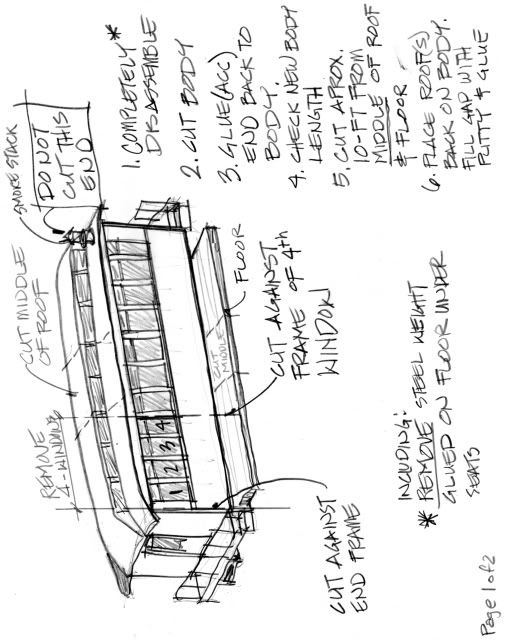 SMOKE STACK
DO NOT
CUT THIS
END
CUT MIDDLE
OF ROOF
REMOVE
4-WINDOWS
1 2 3 4
CUT
MIDDLE
FLOOR
CUT AGAINST
FRAME OF 4th
WINDOW
CUT AGAINST
END FRAME
1. COMPLETELY*
DISASSEMBLE
2. CUT BODY
3. GLUE(ACC)
END BACK TO
BODY.
4. CHECK NEW BODY
LENGTH
5. CUT APROX.
10-FT FROM
MIDDLE OF ROOF
& FLOOR
6. PLACE ROOF(S)
BACK ON BODY.
FILL GAP WITH
PUTTY & GLUE
INCLUDING:
* REMOVE STEEL WEIGHT
GLUED ON FLOOR UNDER
SEATS
Page 1 of 2